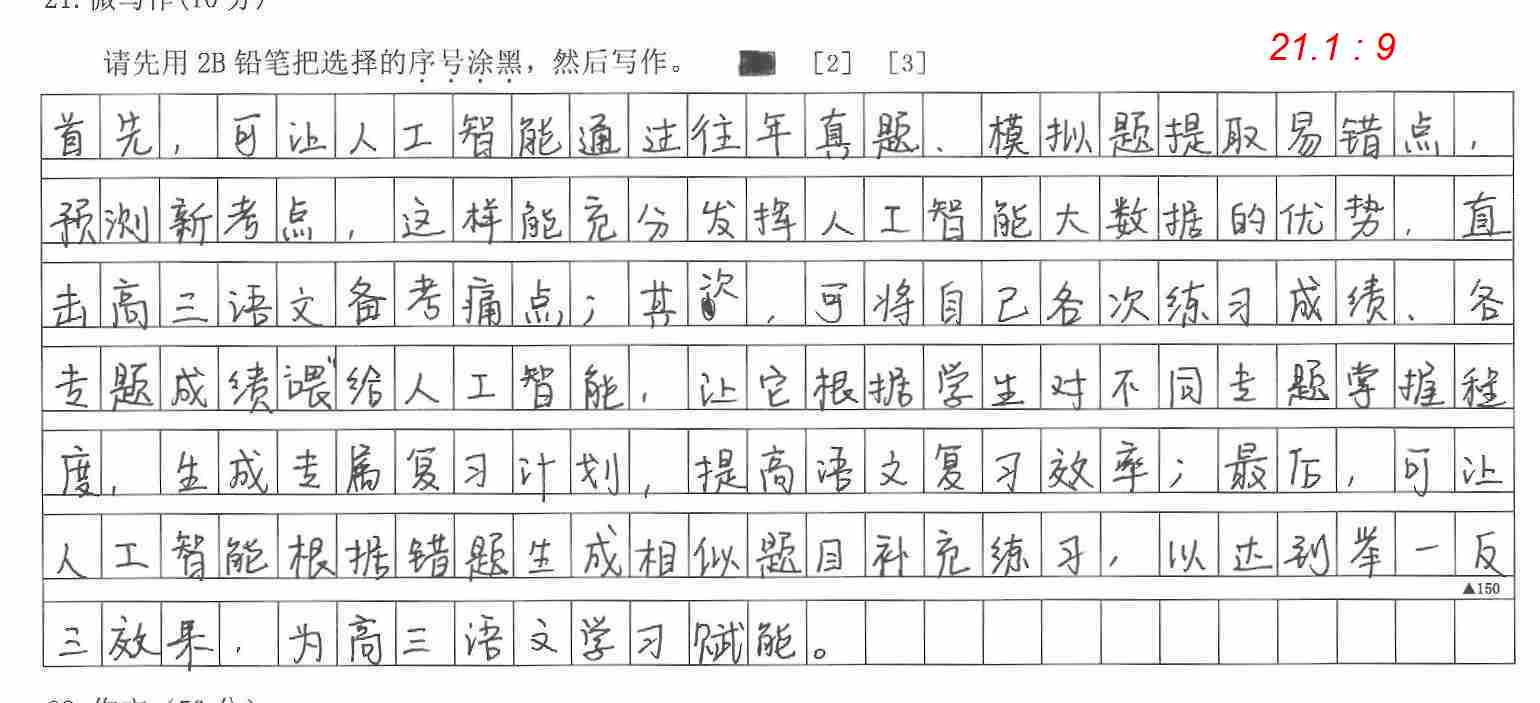 请先用 2B 铅笔把选择的序号涂黑，然后写作。 [2] [3]
21.1 : 9
首先，可让人工智能通过往年真题、模拟题提取易错点，
预测新考点，这样能充分发挥人工智能大数据的优势，直
击高三语文备考痛点；其次，可将自己各次练习成绩、各
专题成绩“喂”给人工智能，让它根据学生对不同专题掌握程
度，生成专属复习计划，提高语文复习效率；最后，可让
人工智能根据错题生成相似题目补充练习，以达到举一反
▲150
三效果，为高三语文学习赋能。